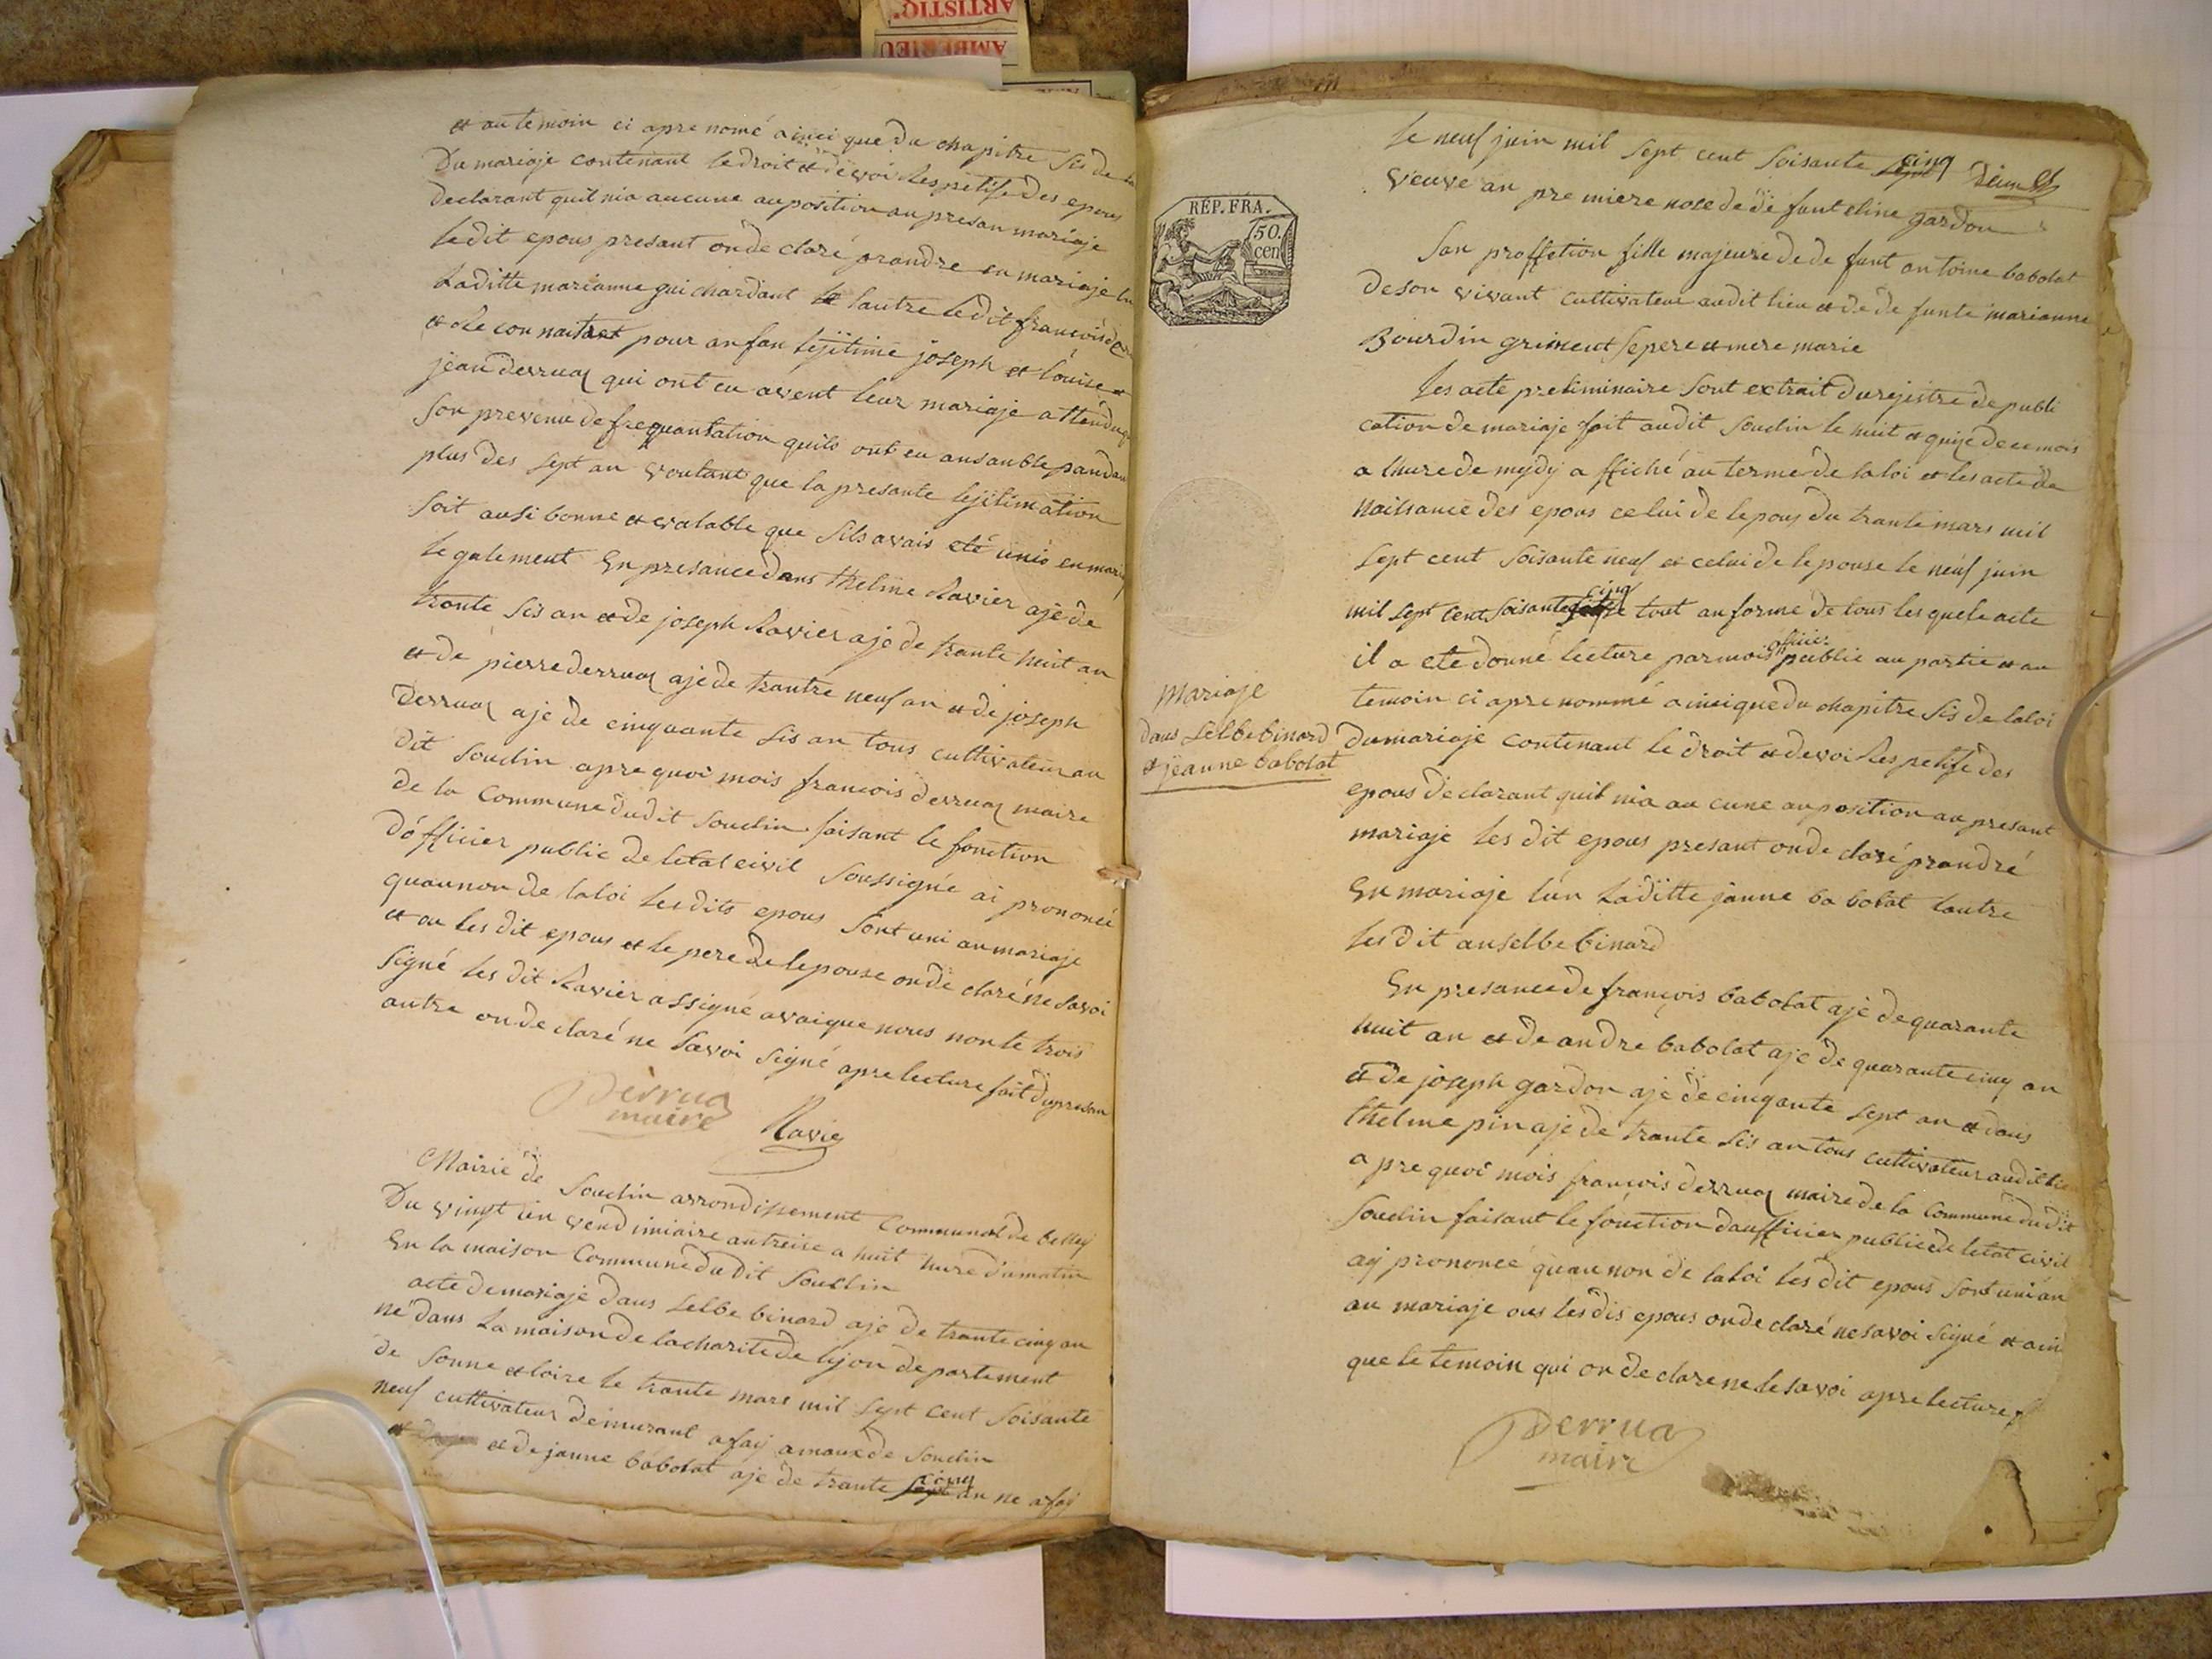 ARTISTIQ.
AMBERIEU
et au temoin ci apre nomé ainci que du chapitre sis de la
Du mariaje contenant le droit et devoi Respetife des epous
Declarant quil nia aucune auposition au presan mariaje
Ledit epous presant onde claré prandre en mariaje lun
Laditte marianne guichardant et lautre ledit francois
et Reconnaitret pour anfan lejitime joseph et louise et
jean Derruaz qui ont eu avent leur mariaje attendu
son prevenu de frequantation quils ont eu ansanble pandan
plus des sept an voulant que la presante lejitimation
soit ausi bonne et valable que sils avais eté unis en mariaj
legalement En presance dans thelme Ravier aje de
trante sis an et de joseph Ravier aje de trante huit an
et de pierre derruaz aje de trantre neuf an et de joseph
Derruaz aje de cinquante sis an tous cultivateur au
dit Souclin apre quoi mois francois derruaz maire
de la Commune dudit Souclin faisant le fonction
d'officier public de letat civil Soussigné ai prononcé
quaunon de laloi lesdits epous sont uni au mariaje
et ou les dit epous et le pere de lepouse onde claré ne savoi
signé les dit Ravier a ssigné avaique nous non le trois
autre onde claré ne savoi signé apre lecture fait du presan
Derruaz
maire
Ravier
Mairie de Souclin arrondissement Communal de belley
Du vingt un vendimiaire antreise a huit hure dumatin
En la maison Commune dudit Souclin
acte de mariaje dans Selbe binard aje de trante cinq an
né dans La maison de lacharite de lyon departement
de Sonne et loire le trante mars mil sept cent soisante
neuf cultivateur demurant afay amaux de Souclin
et de janne babolat aje de trante cinq an ne afay
RÉP. FRA.
50.
cen
Mariaje
dans Selbe binard
et jeanne babolat
le neuf juin mil sept cent soisante cinq
veuve an premiere nose de de funt gardon
San proffetion fille majeure de de funt antoine babolat
de son vivant cultivateur audit lieu et de de funte marianne
Bourdin
Les acte preliminaire sont extrait du rejistre de publi
cation de mariaje fait audit Souclin le huit et quije de ce mois
a lhure de mydy a ffiché au terme de laloi et les acte de
naisance des epous celui de lepoux du trante mars mil
sept cent soisante neuf et celui de lepouse le neuf juin
mil sept cent soisante cinq tout anforme de tous les quele acte
il a eté donné lecture parmois oficier public au partie et au
temoin ci apre nommé ainci que du chapitre sis de laloi
du mariaje contenant le droit et devoi Respetife des
epous declarant quil nia au cune auposition au presant
mariaje les dit epous presant onde claré prandré
En mariaje lun Laditte janne babolat lautre
les dit anselbe binard
En presance de françois babolat aje de quarante
huit an et de andre babolat aje de quarante cinq an
et de joseph gardon aje de cinqante sept an et dans
thelme pin aje de trante sis an tous cultivateur audit lieu
a pre quoi mois francois derruaz maire de la Commune dudit
Souclin faisant le fonction daufficier public de letat civil
ay prononcé quaunon de laloi les dit epous sont uni an
au mariaje ous les dis epous onde claré ne savoi signé et ain
que le temoin qui on declare ne le savoi apre lecture f
Derruaz
maire